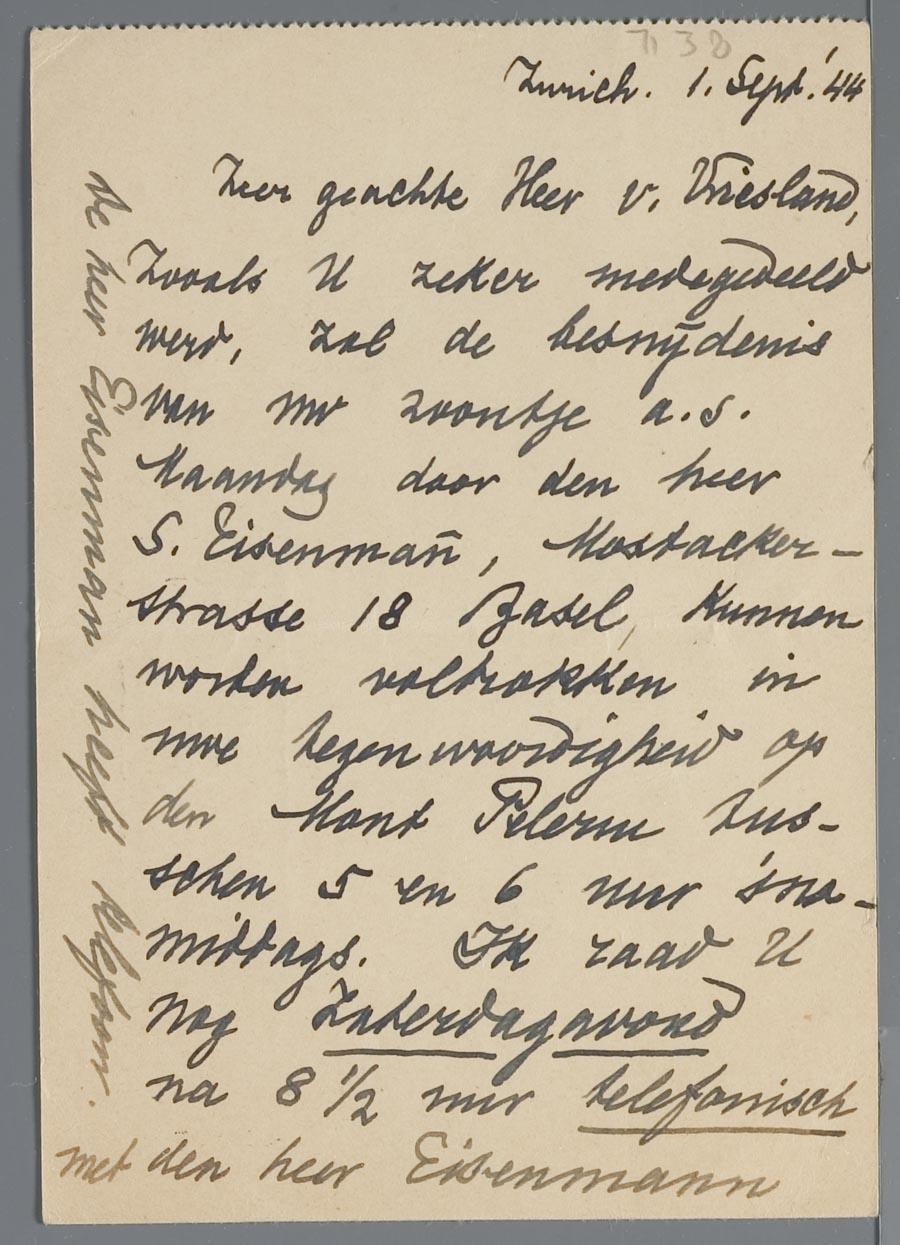 7138
Zurich. 1. Sept. '44
Zeer geachte Heer v. Vriesland,
Zooals U zeker medegedeeld
werd, zal de besnijdenis
van uw zoontje a.s.
Maandag door den heer
S. Eisenmañ, Mostacker-
strasse 18 Basel, kunnen
worden voltrokken in
uwe tegenwoordigheid op
den Mont Pelerin tus-
schen 5 en 6 uur 'sna-
middags. Ik raad U
nog Zaterdagavond
na 8 1/2 uur telefonisch
met den heer Eisenmann
De heer Eisenman heeft telefoon.